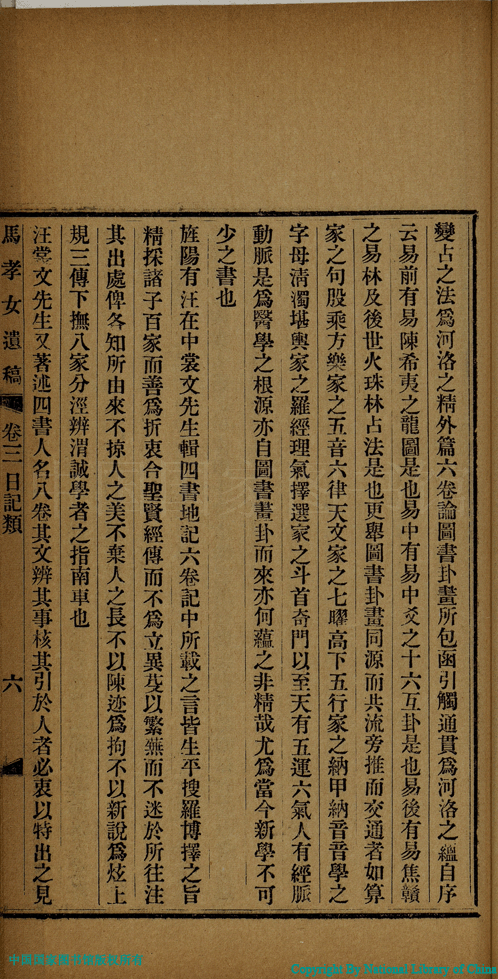 變占之法爲河洛之精外篇六卷論圖書卦畫所包函引觸通貫爲河洛之蘊自序
云易前有易陳希夷之龍圖是也易中有易中爻之十六互卦是也易後有易焦贛
之易林及後世火珠林占法是也更舉圖書卦畫同源而共流旁推而交通者如算
家之句股乘方樂家之五音六律天文家之七曜高下五行家之納甲納音音學之
字母淸濁堪輿家之羅經理氣擇選家之斗首奇門以至天有五運六氣人有經脈
動脈是爲醫學之根源亦自圖書畫卦而來亦何蘊之非精哉尤爲當今新學不可
少之書也
旌陽有汪在中裳文先生輯四書地記六卷記中所載之言皆生平搜羅博擇之旨
精採諸子百家而善爲折衷合聖賢經傳而不爲立異芟以繁蕪而不迷於所往注
其出處俾各知所由來不掠人之美不棄人之長不以陳迹爲拘不以新說爲炫上
規三傳下撫八家分涇辨渭誠學者之指南車也
汪裳文先生又著述四書人名八卷其文辨其事核其引於人者必衷以特出之見
馬孝女遺稿 卷三 日記類 六
中国国家图书馆版权所有
Copyright By National Library of China